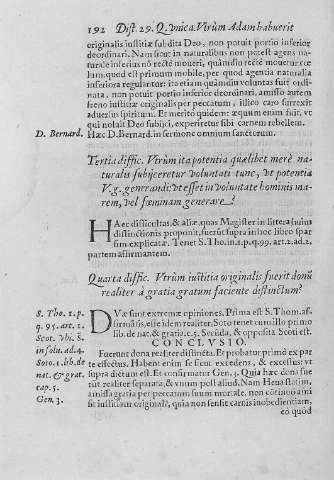 192 Dist. 29. Q. Vnica. Virùm Adam habuerit
originalis iustitiæ subdita Deo, non potuit portio inferior
deordinari. Nam sicut in naturalibus non potest agens na-
turale inferius nō rectè moueri, quamdiu rectè mouetur cœ
lum, quod est primum mobile, per quod agentia naturalia
inferiora regulantur: ita etiam quamdiu voluntas fuit ordi-
nata, non potuit portio inferior deordinari, amisso autem
freno iustitiæ originalis per peccatum, illico caro surrexit
aduersus spiritum. Et meritò quidem: æquum enim fuit, vt
qui nolait Deo subijci, experiretur sibi carnem rebellem.
D. Bernard. Hæc D. Bernard. in sermone omnium sanctorum.
Tertia diffic. Virùm ita potentia quælibet merè na-
turalis subijceretur voluntati tunc, vt potentia
V.g. generandi: vt esset in voluntate hominis ma-
rem, vel fœminam generare?
HAec difficultas, & aliæ, quas Magister in littera huius
distinctionis proponit, fuerūt supra in hoc libro spar
sim explicatæ. Tenet S. Tho. in 1. p. q. 99. art. 2. ad 2.
partem affirmantem.
Quarta diffic. Virùm iustitia originalis fuerit donū
realiter à gratia gratum faciente distinctum?
DVæ sunt extremæ opiniones. Prima est S. Thom. af-
firmātis, esse idem realiter. Soto tenet cum illo primo
lib. de nat. & gratia. c. 5. Secūda, & opposita Scoti est.
S. Tho. 1. p.
q. 95. art. 1.
Scot. vbi. S.
in solu. ad. 4.
Soto. 1. lib. de
nat. & grat.
cap. 5.
Gen. 3.
CONCLVSIO.
Fuerunt dona realiter distincta. Et probatur primò ex par
te effectus. Habent enim se sicut excedens, & excessus: vt
supra dictum est. Et confirmatur Gen. 3. Quia hæc dona fue
rūt realiter separata, & vnum post aliud. Nam Heua statim,
amissa gratia per peccatum suum mortale, non cōtinuò ami
sit iustitiam originalē, quia non sensit carnis inobedientiam,
eò quòd